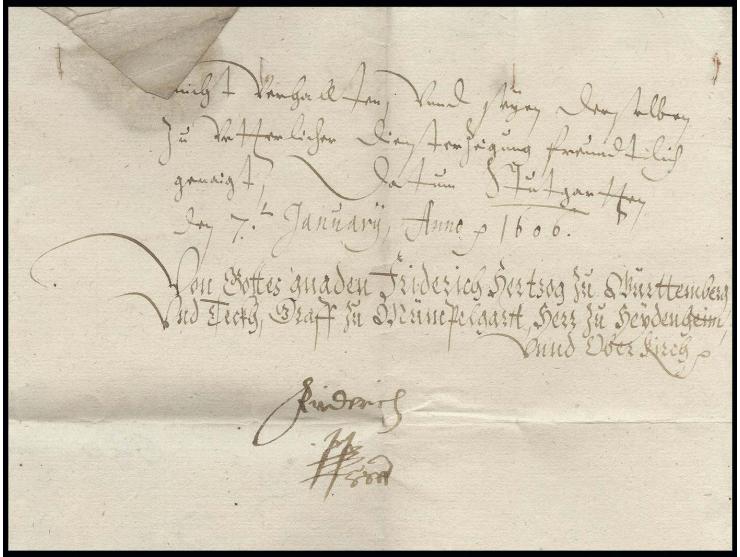 nicht Verhallten, Vnnd seyen derselben
Zu Vetterlicher dienst erzeigung freundtlich
genaigt, Datum Stutgartten
den 7.ten January, Anno 1606.
Von Gottes gnaden Friderich Hertzog Zu Württemberg
Vnd Teckh, Graff Zu Mümpelgartt, Herr Zu Heydenheim,
Vnnd Oberkirch
Friderich